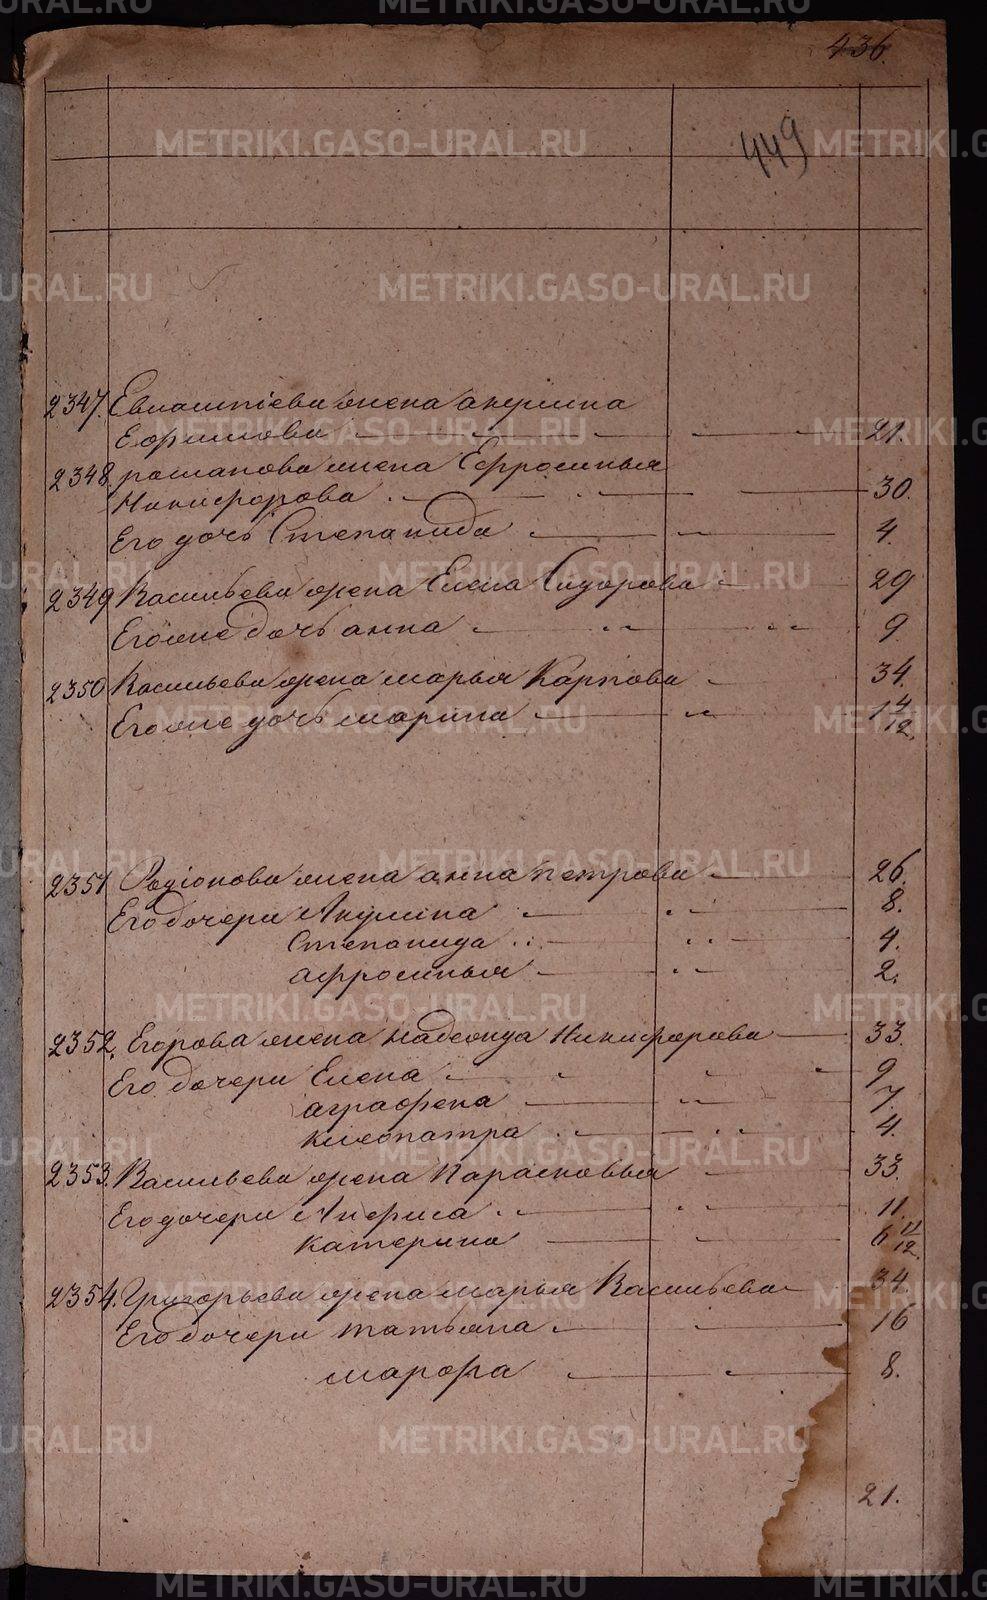 436.
449
2347. Евламтіева жена акулина
Ефимова 21.
2348. романова жена Ефросинья
Никифорова 30.
Его дочь Степанида 4.
2349 Васильева жена Елена Сидорова 29
Егоже дочь анна 9.
2350 Васильева жена марья Карпова 34.
Егоже дочь марина 1 4/12.
2351 Родіонова жена анна петрова 26.
Его дочери Акулина 8.
Степанида 4.
афросинья 2.
2352. Егорова жена надеонда Никифорова 33.
Его дочери Елена 9
аграфена 7.
клеопатра 4.
2353. Васильева жена Парасковья 33.
Его дочери Анфиса 11
катерина 6 11/12.
2354. Григорьева жена марья Васильева 34.
Его дочери татьяна 16
марфа 8.
21.
METRIKI.GASO-URAL.RU